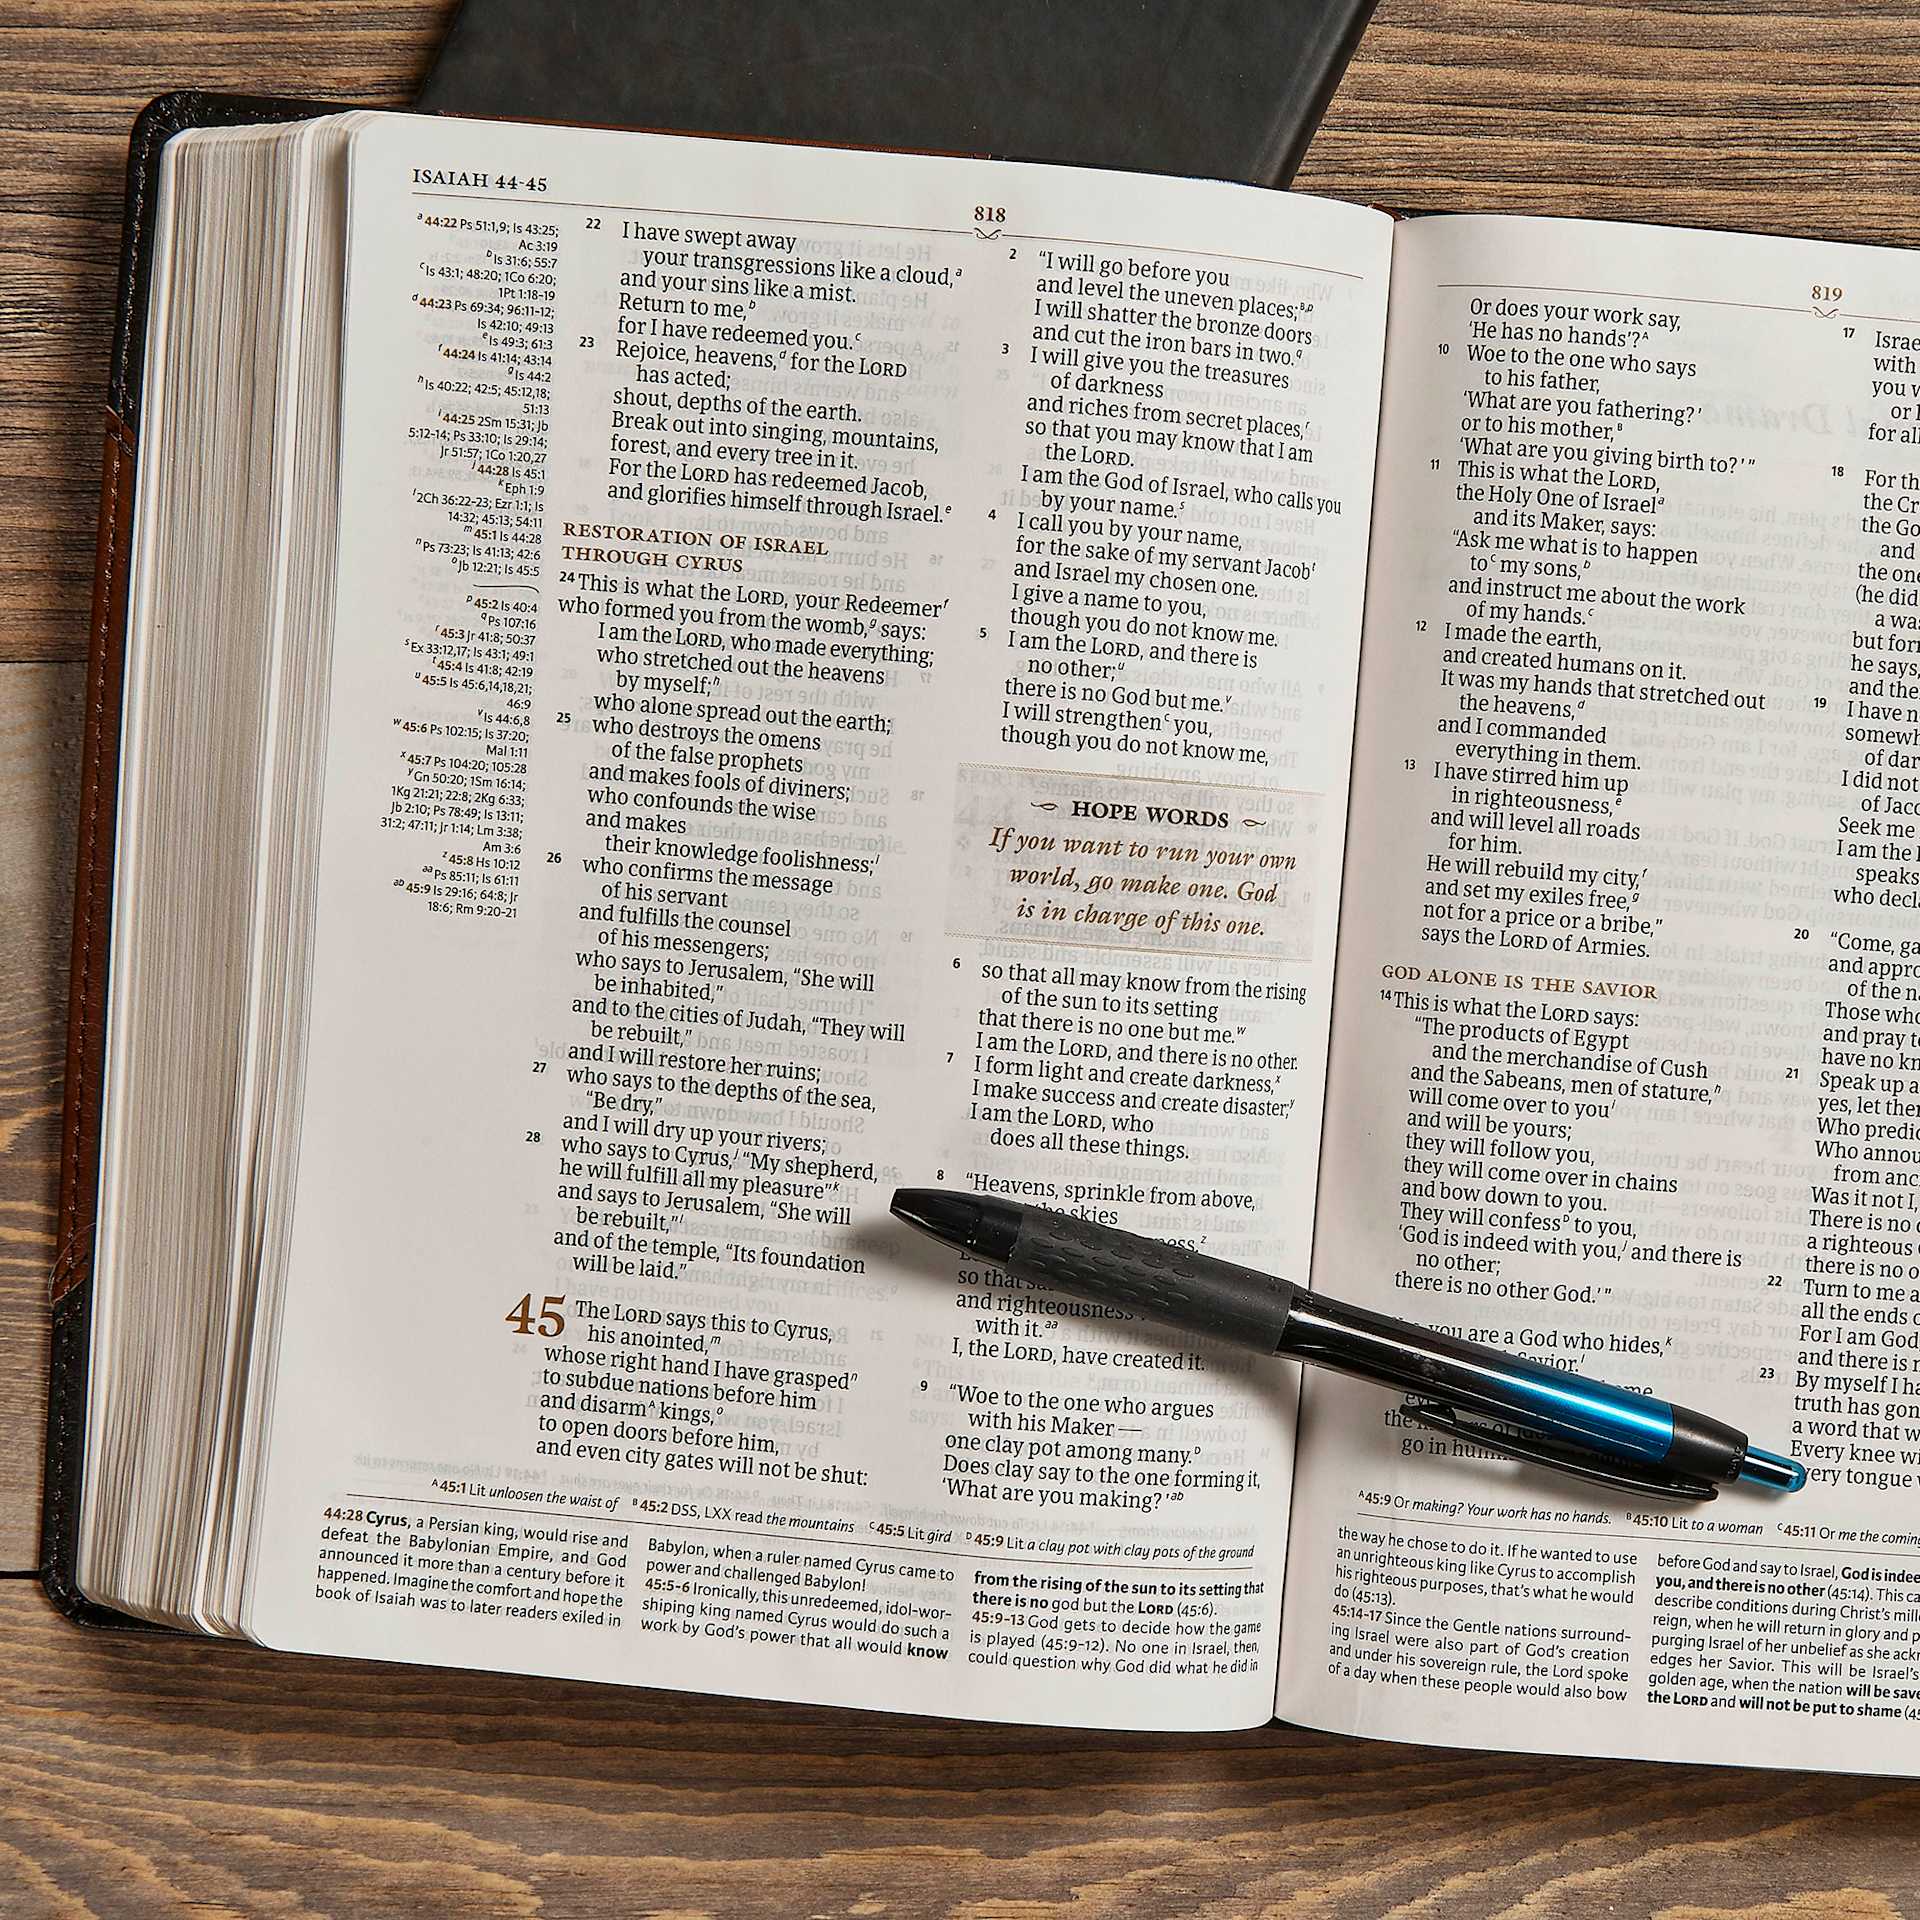 ISAIAH 44-45
818
a 44:22 Ps 51:1,9; Is 43:25;
Ac 3:19
b Is 31:6; 55:7
c Is 43:1; 48:20; 1Co 6:20;
1Pt 1:18-19
d 44:23 Ps 69:34; 96:11-12;
Is 42:10; 49:13
e Is 49:3; 61:3
f 44:24 Is 41:14; 43:14
g Is 44:2
h Is 40:22; 42:5; 45:12,18;
51:13
i 44:25 2Sm 15:31; Jb
5:12-14; Ps 33:10; Is 29:14;
Jr 51:57; 1Co 1:20,27
j 44:28 Is 45:1
k Eph 1:9
l 2Ch 36:22-23; Ezr 1:1; Is
14:32; 45:13; 54:11
m 45:1 Is 44:28
n Ps 73:23; Is 41:13; 42:6
o Jb 12:21; Is 45:5
p 45:2 Is 40:4
q Ps 107:16
r 45:3 Jr 41:8; 50:37
s Ex 33:12,17; Is 43:1; 49:1
t 45:4 Is 41:8; 42:19
u 45:5 Is 45:6,14,18,21;
46:9
v Is 44:6,8
w 45:6 Ps 102:15; Is 37:20;
Mal 1:11
x 45:7 Ps 104:20; 105:28
y Gn 50:20; 1Sm 16:14;
1Kg 21:21; 22:8; 2Kg 6:33;
Jb 2:10; Ps 78:49; Is 13:11;
31:2; 47:11; Jr 1:14; Lm 3:38;
Am 3:6
z 45:8 Hs 10:12
aa Ps 85:11; Is 61:11
ab 45:9 Is 29:16; 64:8; Jr
18:6; Rm 9:20-21
22 I have swept away
your transgressions like a cloud,a
and your sins like a mist.
Return to me,b
for I have redeemed you.c
23 Rejoice, heavens,d for the LORD
has acted;
shout, depths of the earth.
Break out into singing, mountains,
forest, and every tree in it.
For the LORD has redeemed Jacob,
and glorifies himself through Israel.e
RESTORATION OF ISRAEL
THROUGH CYRUS
24 This is what the LORD, your Redeemerf
who formed you from the womb,g says:
I am the LORD, who made everything;
who stretched out the heavens
by myself;h
who alone spread out the earth;
25 who destroys the omens
of the false prophets
and makes fools of diviners;
who confounds the wise
and makes
their knowledge foolishness;i
26 who confirms the message
of his servant
and fulfills the counsel
of his messengers;
who says to Jerusalem, “She will
be inhabited,”
and to the cities of Judah, “They will
be rebuilt,”
and I will restore her ruins;
27 who says to the depths of the sea,
“Be dry,”
and I will dry up your rivers;
28 who says to Cyrus,j “My shepherd,
he will fulfill all my pleasure”k
and says to Jerusalem, “She will
be rebuilt,”l
and of the temple, “Its foundation
will be laid.”
45 The LORD says this to Cyrus,
his anointed,m
whose right hand I have graspedn
to subdue nations before him
and disarmA kings,o
to open doors before him,
and even city gates will not be shut:
2 “I will go before you
and level the uneven places;B,p
I will shatter the bronze doors
and cut the iron bars in two.q
3 I will give you the treasures
of darkness
and riches from secret places,r
so that you may know that I am
the LORD.
I am the God of Israel, who calls you
by your name.s
4 I call you by your name,
for the sake of my servant Jacobt
and Israel my chosen one.
I give a name to you,
though you do not know me.
5 I am the LORD, and there is
no other;u
there is no God but me.v
I will strengthenC you,
though you do not know me,
HOPE WORDS
If you want to run your own
world, go make one. God
is in charge of this one.
6 so that all may know from the rising
of the sun to its setting
that there is no one but me.w
I am the LORD, and there is no other.
7 I form light and create darkness,x
I make success and create disaster;y
I am the LORD, who
does all these things.
8 “Heavens, sprinkle from above,
skies
so that
and righteousness
with it.aa
I, the LORD, have created it.
9 “Woe to the one who argues
with his Maker—
one clay pot among many.D
Does clay say to the one forming it,
‘What are you making?’ab
A 45:1 Lit unloosen the waist of B 45:2 DSS, LXX read the mountains C 45:5 Lit gird D 45:9 Lit a clay pot with clay pots of the ground
44:28 Cyrus, a Persian king, would rise and
defeat the Babylonian Empire, and God
announced it more than a century before it
happened. Imagine the comfort and hope the
book of Isaiah was to later readers exiled in
Babylon, when a ruler named Cyrus came to
power and challenged Babylon!
45:5-6 Ironically, this unredeemed, idol-wor-
shiping king named Cyrus would do such a
work by God’s power that all would know
from the rising of the sun to its setting that
there is no god but the LORD (45:6).
45:9-13 God gets to decide how the game
is played (45:9-12). No one in Israel, then,
could question why God did what he did in
819
Or does your work say,
‘He has no hands’?A
10 Woe to the one who says
to his father,
‘What are you fathering?’
or to his mother,B
‘What are you giving birth to?’ ”
11 This is what the LORD,
the Holy One of Israela
and its Maker, says:
“Ask me what is to happen
toC my sons,b
and instruct me about the work
of my hands.c
12 I made the earth,
and created humans on it.
It was my hands that stretched out
the heavens,d
and I commanded
everything in them.
13 I have stirred him up
in righteousness,e
and will level all roads
for him.
He will rebuild my city,f
and set my exiles free,g
not for a price or a bribe,”
says the LORD of Armies.
GOD ALONE IS THE SAVIOR
14 This is what the LORD says:
“The products of Egypt
and the merchandise of Cush
and the Sabeans, men of stature,h
will come over to youi
and will be yours;
they will follow you,
they will come over in chains
and bow down to you.
They will confessD to you,
‘God is indeed with you,j and there is
no other;
there is no other God.’ ”
you are a God who hides,k
Savior.l
go in
17 Israe
with
you w
or
for all
18 For th
the Cr
the Go
and
the one
(he did
a was
but for
he says,
and the
19 I have n
somewh
of dar
I did not
of Jaco
Seek me
I am the
speaks
who decl
20 “Come, ga
and appro
of the n
Those who
and pray t
have no kn
21 Speak up a
yes, let the
Who predic
Who annou
from anc
Was it not I,
There is no
a righteous
there is no
22 Turn to me a
all the ends o
For I am God,
and there is n
23 By myself I ha
truth has gon
a word that w
Every knee wi
very tongue
A 45:9 Or making? Your work has no hands. B 45:10 Lit to a woman C 45:11 Or me the coming
the way he chose to do it. If he wanted to use
an unrighteous king like Cyrus to accomplish
his righteous purposes, that’s what he would
do (45:13).
45:14-17 Since the Gentile nations surround-
ing Israel were also part of God’s creation
and under his sovereign rule, the Lord spoke
of a day when these people would also bow
before God and say to Israel, God is indee
you, and there is no other (45:14). This ca
describe conditions during Christ’s mill
reign, when he will return in glory and p
purging Israel of her unbelief as she ack
edges her Savior. This will be Israel’s
golden age, when the nation will be save
the LORD and will not be put to shame (45